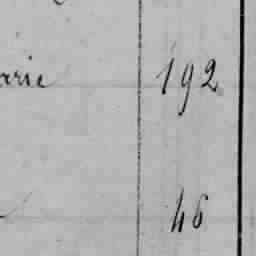 arie 192
46